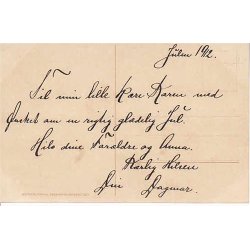 Julen 1912.
Til min lille kære Karen med
Ønsket om en rigtig glædelig Jul.
Hils dine Forældre og Anna.
Kærlig Hilsen
Din Dagmar.